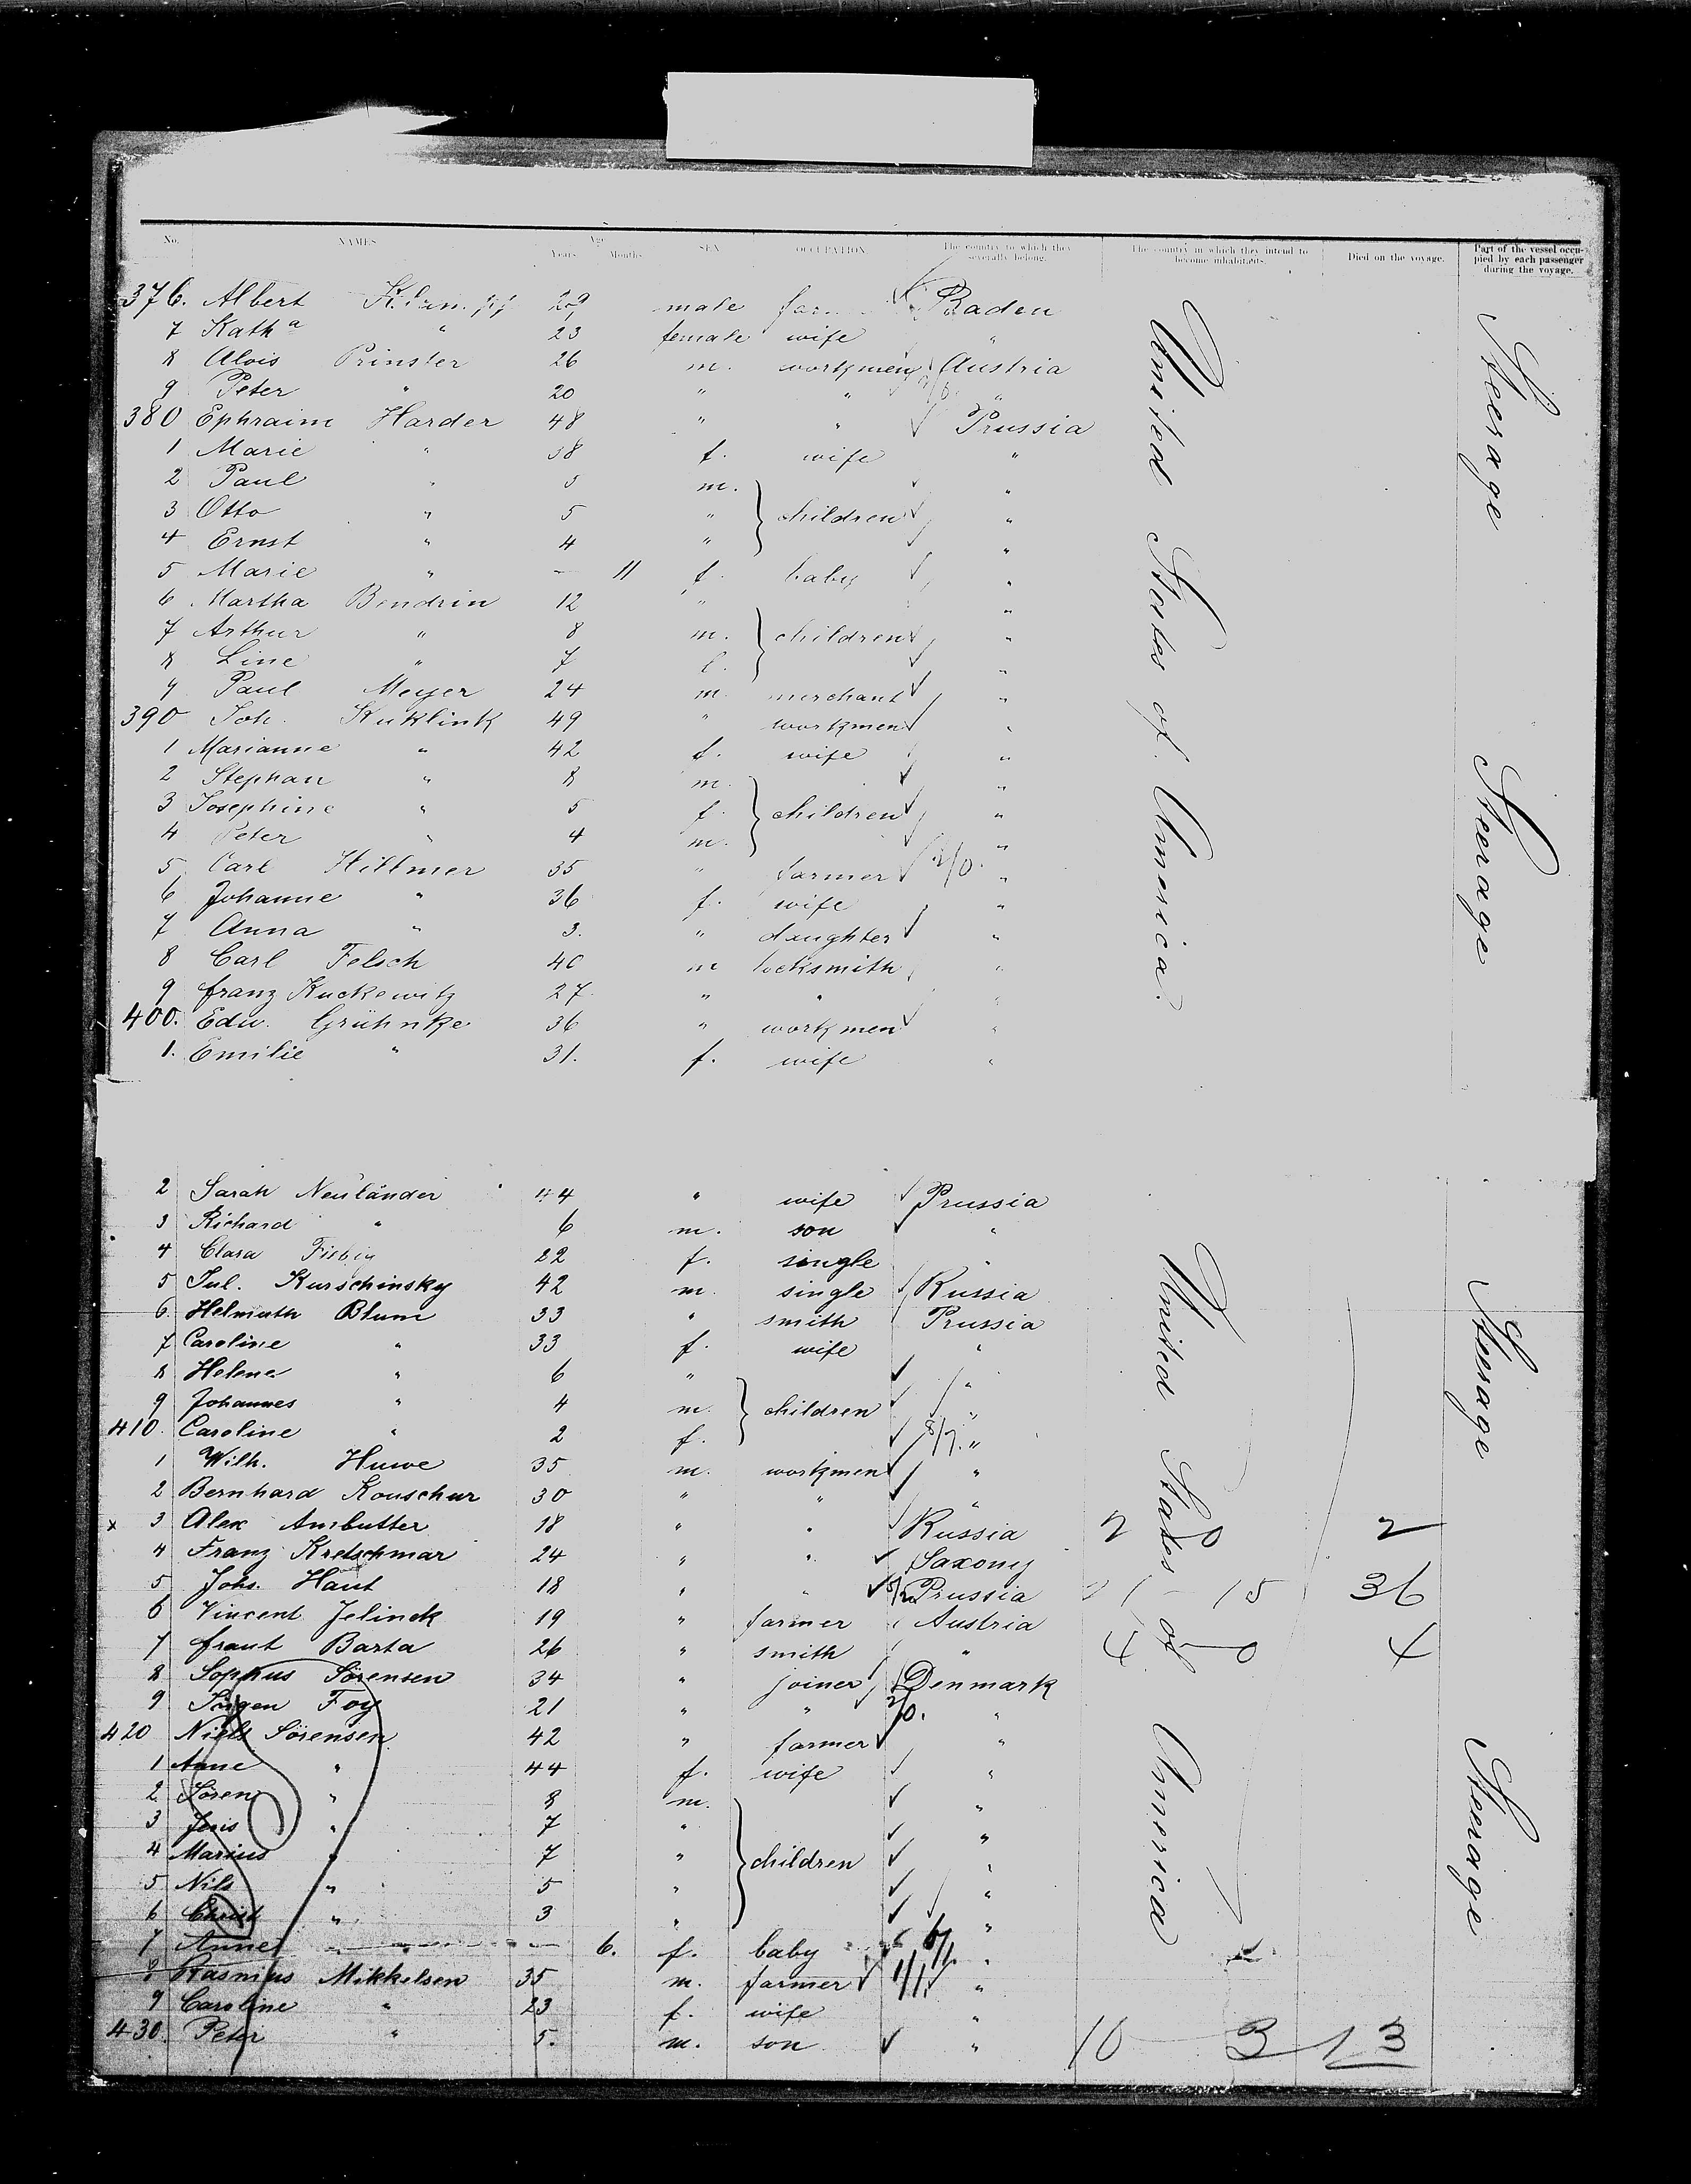 No. NAMES Age Years Months SEX OCCUPATION The country to which they severally belong. The country in which they intend to become inhabitants. Died on the voyage. Part of the vessel occupied by each passenger during the voyage.
376. Albert 29 male Baden
7 Kath a " 23 female wife "
8 Alois Prinster 26 m. workmen Austria
9 Peter " 20 " " "
380 Ephraim Harder 48 " " Prussia
1 Marie " 38 f. wife "
2 Paul " 5 m. "
3 Otto " 5 " children "
4 Ernst " 4 " "
5 Marie " — 11 f. baby "
6 Martha Bendrin 12 " "
7 Arthur " 8 m. children "
8 Line " 7 f. "
9 Paul Meyer 24 m. merchant "
390 Joh. Kuklink 49 " workmen "
1 Marianne " 42 f. wife "
2 Stephan " 8 m. "
3 Josephine " 5 f. children "
4 Peter " 4 m. "
5 Carl Hillmer 35 " farmer 2/0. "
6 Johanne " 36 f. wife "
7 Anna " 3. " daughter "
8 Carl Felsch 40 m locksmith "
9 franz Kuckewitz 27 " " "
400. Edw. Grühnke 36 " workmen "
1. Emilie " 31. f. wife "
United States of America.
Steerage
Steerage
2 Sarah Neuländer 44 " wife Prussia
3 Richard " 6 m. son "
4 Clara Fiebig 22 f. single "
5 Jul. Kurschinsky 42 m. single Russia
6 Helmuth Blum 33 " smith Prussia
7 Caroline " 33 f. wife "
8 Helene " 6 " "
9 Johannes " 4 m. children "
410. Caroline " 2 f. 8/7. "
1 Wilh. Huwe 35 m. workmen "
2 Bernhard Kouschur 30 " " "
x 3 Alex Ambutter 18 " " Russia 2 0 2
4 Franz Kretschmar 24 " " Saxony
5 Johs. Haut 18 " " Prussia 15 36
6 Vincent Jelinek 19 " farmer Austria
7 frant Barta 26 " smith " 4 0 4
8 Sophus Sörensen 34 " joiner Denmark
9 Jürgen Foy 21 " " 2/0. "
420 Niels Sörensen 42 " farmer "
1 Anne " 44 f. wife "
2 Sören " 8 m. "
3 Jens " 7 " "
4 Marius " 7 " children "
5 Nils " 5 " "
6 Christ " 3 " "
7 Anne " — 6. f. baby 6/1. "
8 Rasmus Mikkelsen 35 m. farmer 1/1. "
9 Caroline " 23 f. wife "
430. Peter " 5. m. son " 10 3 13
United States of America
Steerage
Steerage